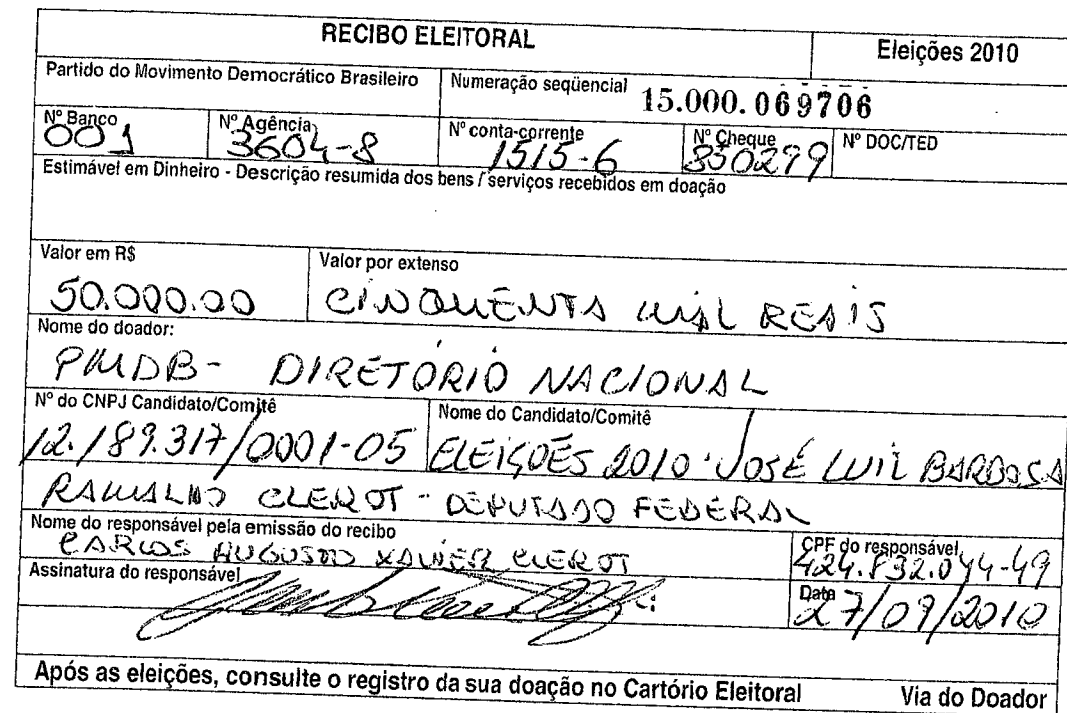 RECIBO ELEITORAL Eleições 2010
Partido do Movimento Democrático Brasileiro Numeração seqüencial 15.000.069706
Nº Banco Nº Agência Nº conta-corrente Nº Cheque Nº DOC/TED
001 3604-8 1515-6 850299
Estimável em Dinheiro - Descrição resumida dos bens / serviços recebidos em doação
Valor em R$ Valor por extenso
50.000.00 CINQUENTA MIL REAIS
Nome do doador:
PMDB- DIRETÓRIO NACIONAL
Nº do CNPJ Candidato/Comitê Nome do Candidato/Comitê
12.189.317/0001-05 ELEIÇÕES 2010 JOSÉ LUIZ BARBOSA
RAMALHO CLEROT - DEPUTADO FEDERAL
Nome do responsável pela emissão do recibo CPF do responsável
CARLOS AUGUSTO XAVIER CLEROT 424.832.044-49
Assinatura do responsável Data
27/09/2010
Após as eleições, consulte o registro da sua doação no Cartório Eleitoral Via do Doador